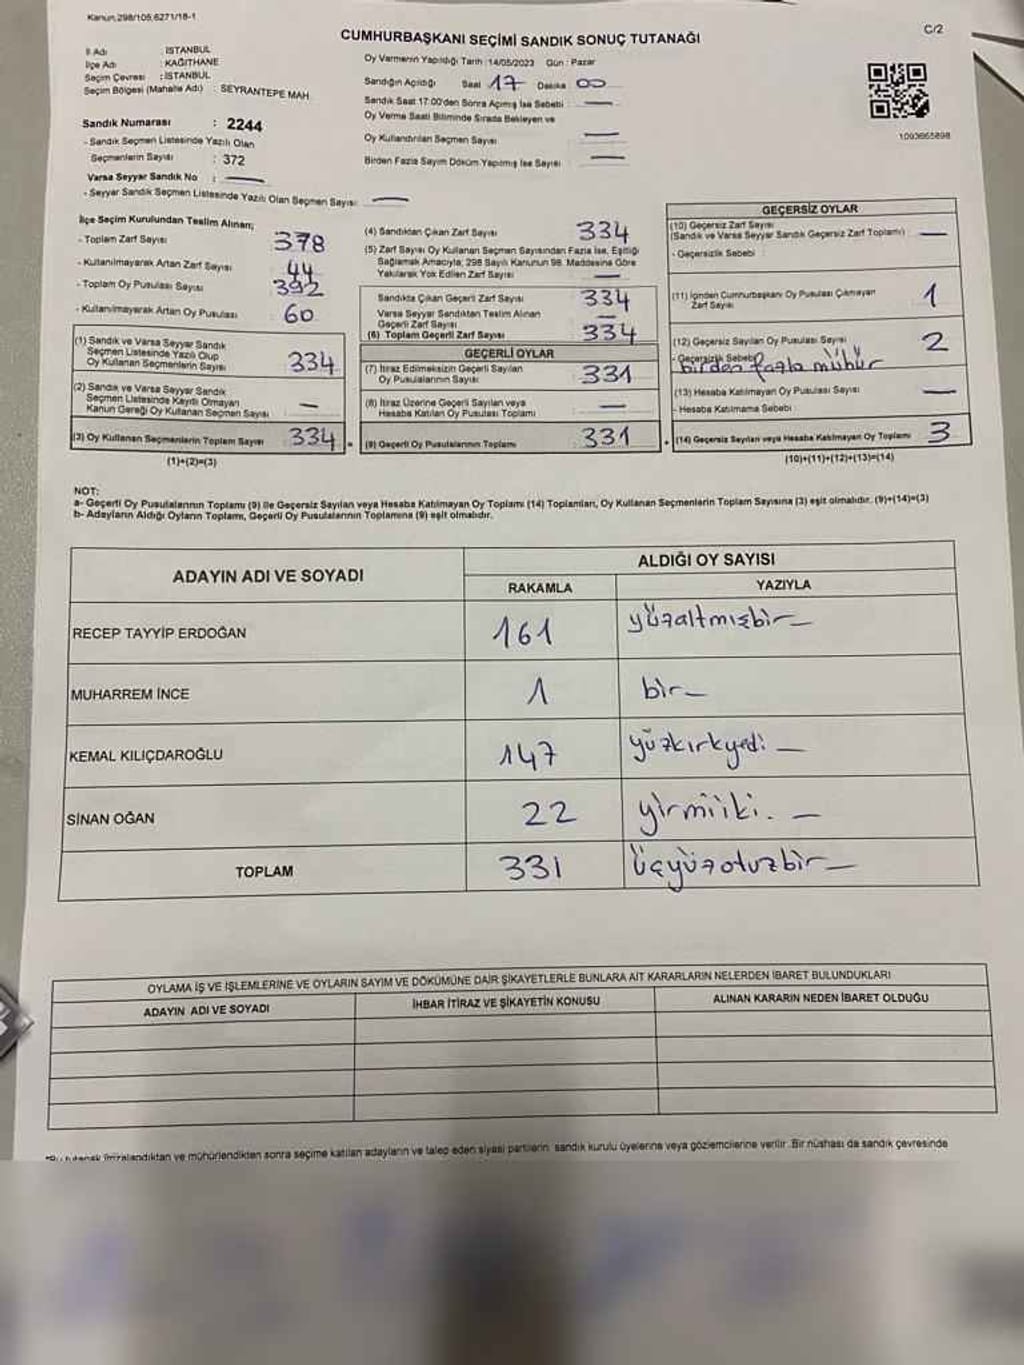 Kanun,298/105,6271/18-1
C/2
CUMHURBAŞKANI SEÇİMİ SANDIK SONUÇ TUTANAĞI
İl Adı : İSTANBUL
İlçe Adı : KAĞITHANE
Seçim Çevresi : İSTANBUL
Seçim Bölgesi (Mahalle Adı) : SEYRANTEPE MAH.
Sandık Numarası : 2244
- Sandık Seçmen Listesinde Yazılı Olan
Seçmenlerin Sayısı : 372
Varsa Seyyar Sandık No : —
- Seyyar Sandık Seçmen Listesinde Yazılı Olan Seçmen Sayısı: —
Oy Vermenin Yapıldığı Tarih :14/05/2023 Gün : Pazar
Sandığın Açıldığı Saat 17 Dakika 00
Sandık Saat 17:00'den Sonra Açılmış İse Sebebi : —
Oy Verme Saati Bitiminde Sırada Bekleyen ve
Oy Kullandırılan Seçmen Sayısı : —
Birden Fazla Sayım Döküm Yapılmış İse Sayısı : —
1093665898
İlçe Seçim Kurulundan Teslim Alınan;
- Toplam Zarf Sayısı : 378
- Kullanılmayarak Artan Zarf Sayısı : 44
- Toplam Oy Pusulası Sayısı : 392
- Kullanılmayarak Artan Oy Pusulası : 60
(1) Sandık ve Varsa Seyyar Sandık
Seçmen Listesinde Yazılı Olup
Oy Kullanan Seçmenlerin Sayısı : 334
(2) Sandık ve Varsa Seyyar Sandık
Seçmen Listesinde Kayıtlı Olmayan
Kanun Gereği Oy Kullanan Seçmen Sayısı : —
(3) Oy Kullanan Seçmenlerin Toplam Sayısı : 334 =
(1)+(2)=(3)
(4) Sandıktan Çıkan Zarf Sayısı : 334
(5) Zarf Sayısı Oy Kullanan Seçmen Sayısından Fazla İse, Eşitliği
Sağlamak Amacıyla; 298 Sayılı Kanunun 98. Maddesine Göre
Yakılarak Yok Edilen Zarf Sayısı : —
Sandıkta Çıkan Geçerli Zarf Sayısı : 334
Varsa Seyyar Sandıktan Teslim Alınan
Geçerli Zarf Sayısı : —
(6) Toplam Geçerli Zarf Sayısı : 334
GEÇERLİ OYLAR
(7) İtiraz Edilmeksizin Geçerli Sayılan
Oy Pusulalarının Sayısı : 331
(8) İtiraz Üzerine Geçerli Sayılan veya
Hesaba Katılan Oy Pusulası Toplamı : —
(9) Geçerli Oy Pusulalarının Toplamı : 331 +
GEÇERSİZ OYLAR
(10) Geçersiz Zarf Sayısı
(Sandık ve Varsa Seyyar Sandık Geçersiz Zarf Toplamı) : —
- Geçersizlik Sebebi :
(11) İçinden Cumhurbaşkanı Oy Pusulası Çıkmayan
Zarf Sayısı : 1
(12) Geçersiz Sayılan Oy Pusulası Sayısı : 2
- Geçersizlik Sebebi : birden fazla mühür
(13) Hesaba Katılmayan Oy Pusulası Sayısı : —
- Hesaba Katılmama Sebebi :
(14) Geçersiz Sayılan veya Hesaba Katılmayan Oy Toplamı : 3
(10)+(11)+(12)+(13)=(14)
NOT:
a- Geçerli Oy Pusulalarının Toplamı (9) ile Geçersiz Sayılan veya Hesaba Katılmayan Oy Toplamı (14) Toplamları, Oy Kullanan Seçmenlerin Toplam Sayısına (3) eşit olmalıdır. (9)+(14)=(3)
b- Adayların Aldığı Oyların Toplamı, Geçerli Oy Pusulalarının Toplamına (9) eşit olmalıdır.
ADAYIN ADI VE SOYADI ALDIĞI OY SAYISI
RAKAMLA YAZIYLA
RECEP TAYYİP ERDOĞAN 161 yüzaltmışbir —
MUHARREM İNCE 1 bir —
KEMAL KILIÇDAROĞLU 147 yüzkırkyedi —
SİNAN OĞAN 22 yirmiiki. —
TOPLAM 331 üçyüzotuzbir —
OYLAMA İŞ VE İŞLEMLERİNE VE OYLARIN SAYIM VE DÖKÜMÜNE DAİR ŞİKAYETLERLE BUNLARA AİT KARARLARIN NELERDEN İBARET BULUNDUKLARI
ADAYIN ADI VE SOYADI İHBAR İTİRAZ VE ŞİKAYETİN KONUSU ALINAN KARARIN NEDEN İBARET OLDUĞU
*Bu tutanak imzalandıktan ve mühürlendikten sonra seçime katılan adayların ve talep eden siyasi partilerin sandık kurulu üyelerine veya gözlemcilerine verilir. Bir nüshası da sandık çevresinde